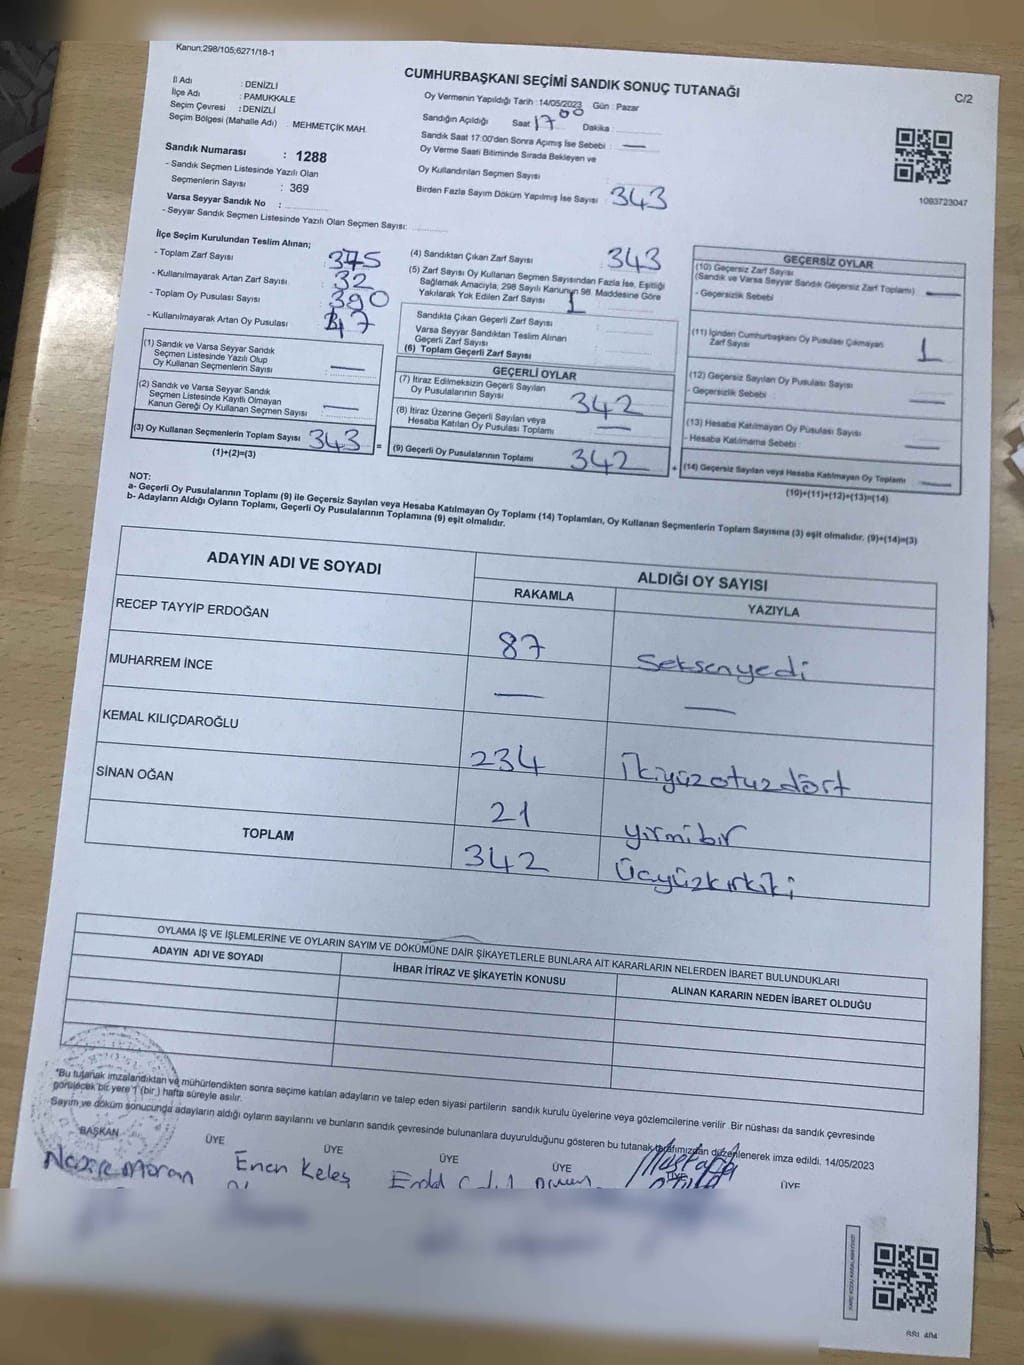 Kanun;298/105;6271/18-1
CUMHURBAŞKANI SEÇİMİ SANDIK SONUÇ TUTANAĞI
C/2
İl Adı : DENİZLİ
İlçe Adı : PAMUKKALE
Seçim Çevresi : DENİZLİ
Seçim Bölgesi (Mahalle Adı) : MEHMETÇİK MAH.
Oy Vermenin Yapıldığı Tarih : 14/05/2023 Gün : Pazar
Sandığın Açıldığı Saat : 17 Dakika : 00
Sandık Saat 17:00'dan Sonra Açımış İse Sebebi : —
Oy Verme Saati Bitiminde Sırada Bekleyen ve
Oy Kullandırılan Seçmen Sayısı :
Birden Fazla Sayım Döküm Yapılmış İse Sayısı : 343
1093723047
Sandık Numarası : 1288
- Sandık Seçmen Listesinde Yazılı Olan
Seçmenlerin Sayısı : 369
Varsa Seyyar Sandık No :
- Seyyar Sandık Seçmen Listesinde Yazılı Olan Seçmen Sayısı:
İlçe Seçim Kurulundan Teslim Alınan;
- Toplam Zarf Sayısı : 375
- Kullanılmayarak Artan Zarf Sayısı : 32
- Toplam Oy Pusulası Sayısı : 390
- Kullanılmayarak Artan Oy Pusulası : 47
(1) Sandık ve Varsa Seyyar Sandık
Seçmen Listesinde Yazılı Olup
Oy Kullanan Seçmenlerin Sayısı : —
(2) Sandık ve Varsa Seyyar Sandık
Seçmen Listesinde Kayıtlı Olmayan
Kanun Gereği Oy Kullanan Seçmen Sayısı : —
(3) Oy Kullanan Seçmenlerin Toplam Sayısı : 343 =
(1)+(2)=(3)
(4) Sandıktan Çıkan Zarf Sayısı : 343
(5) Zarf Sayısı Oy Kullanan Seçmen Sayısından Fazla İse, Eşitliği
Sağlamak Amacıyla, 298 Sayılı Kanunun 98. Maddesine Göre
Yakılarak Yok Edilen Zarf Sayısı : 1
Sandıkta Çıkan Geçerli Zarf Sayısı :
Varsa Seyyar Sandıktan Teslim Alınan
Geçerli Zarf Sayısı :
(6) Toplam Geçerli Zarf Sayısı :
GEÇERLİ OYLAR
(7) İtiraz Edilmeksizin Geçerli Sayılan
Oy Pusulalarının Sayısı : 342
(8) İtiraz Üzerine Geçerli Sayılan veya
Hesaba Katılan Oy Pusulası Toplamı : —
(9) Geçerli Oy Pusulalarının Toplamı : 342 +
GEÇERSİZ OYLAR
(10) Geçersiz Zarf Sayısı
(Sandık ve Varsa Seyyar Sandık Geçersiz Zarf Toplamı) : —
- Geçersizlik Sebebi :
(11) İçinden Cumhurbaşkanı Oy Pusulası Çıkmayan
Zarf Sayısı : 1
(12) Geçersiz Sayılan Oy Pusulası Sayısı :
- Geçersizlik Sebebi : —
(13) Hesaba Katılmayan Oy Pusulası Sayısı :
- Hesaba Katılmama Sebebi : —
(14) Geçersiz Sayılan veya Hesaba Katılmayan Oy Toplamı : —
(10)+(11)+(12)+(13)=(14)
NOT:
a- Geçerli Oy Pusulalarının Toplamı (9) ile Geçersiz Sayılan veya Hesaba Katılmayan Oy Toplamı (14) Toplamları, Oy Kullanan Seçmenlerin Toplam Sayısına (3) eşit olmalıdır. (9)+(14)=(3)
b- Adayların Aldığı Oyların Toplamı, Geçerli Oy Pusulalarının Toplamına (9) eşit olmalıdır.
ADAYIN ADI VE SOYADI ALDIĞI OY SAYISI
RAKAMLA YAZIYLA
RECEP TAYYİP ERDOĞAN 87 Seksenyedi
MUHARREM İNCE — —
KEMAL KILIÇDAROĞLU 234 İkiyüzotuzdört
SİNAN OĞAN 21 yirmibir
TOPLAM 342 Üçyüzkırkiki
OYLAMA İŞ VE İŞLEMLERİNE VE OYLARIN SAYIM VE DÖKÜMÜNE DAİR ŞİKAYETLERLE BUNLARA AİT KARARLARIN NELERDEN İBARET BULUNDUKLARI
ADAYIN ADI VE SOYADI İHBAR İTİRAZ VE ŞİKAYETİN KONUSU ALINAN KARARIN NEDEN İBARET OLDUĞU
"Bu tutanak imzalandıktan ve mühürlendikten sonra seçime katılan adayların ve talep eden siyasi partilerin sandık kurulu üyelerine veya gözlemcilerine verilir. Bir nüshası da sandık çevresinde
görülecek bir yere 1 (bir) hafta süreyle asılır.
Sayım ve döküm sonucunda adayların aldığı oyların sayılarını ve bunların sandık çevresinde bulunanlara duyurulduğunu gösteren bu tutanak tarafımızdan düzenlenerek imza edildi. 14/05/2023
BAŞKAN ÜYE ÜYE ÜYE ÜYE ÜYE ÜYE
Moran Keleş Mustafa